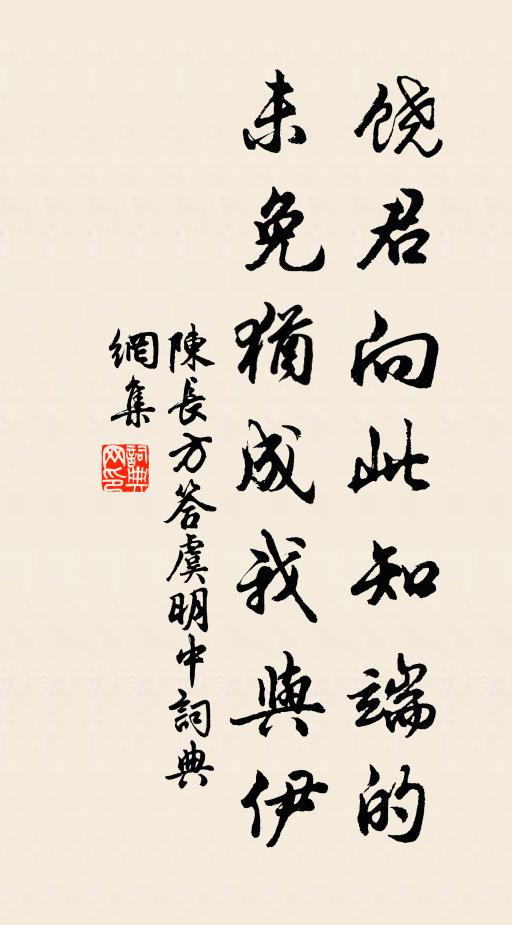 饶君向此知端的
未免猶成我與伊
陳長方答虞明中詞典
網集
詞典
网印